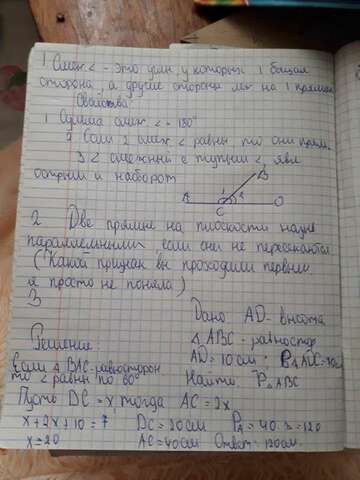 1 Смеж < - это угли, у которых 1 общая
сторона, а другие стороны леж на 1 прямой
Свойства
1 Сумма смеж < = 180°
2 Если 2 смеж < равны то они прям.
3 < смежный с тупым <, явл
острым и наоборот
В
1 2
А С О
2 Две прямые на плоскости назыв
параллельными, если они не пересекаются
(Какой признак вы проходили первым
я просто не поняла)
3 Дано AD - высота
Решение: △ ABC - равностор
Если △ BAC - равносторон AD = 10 см; P△ADC =
то < равны по 60° Найти: P△ABC
Пусть DC = x, тогда AC = 2x
x + 2x + 10 = 7 DC = 20 см P△ = 40 · 3 = 120
x = 20 AC = 40 см Ответ: 120 см.